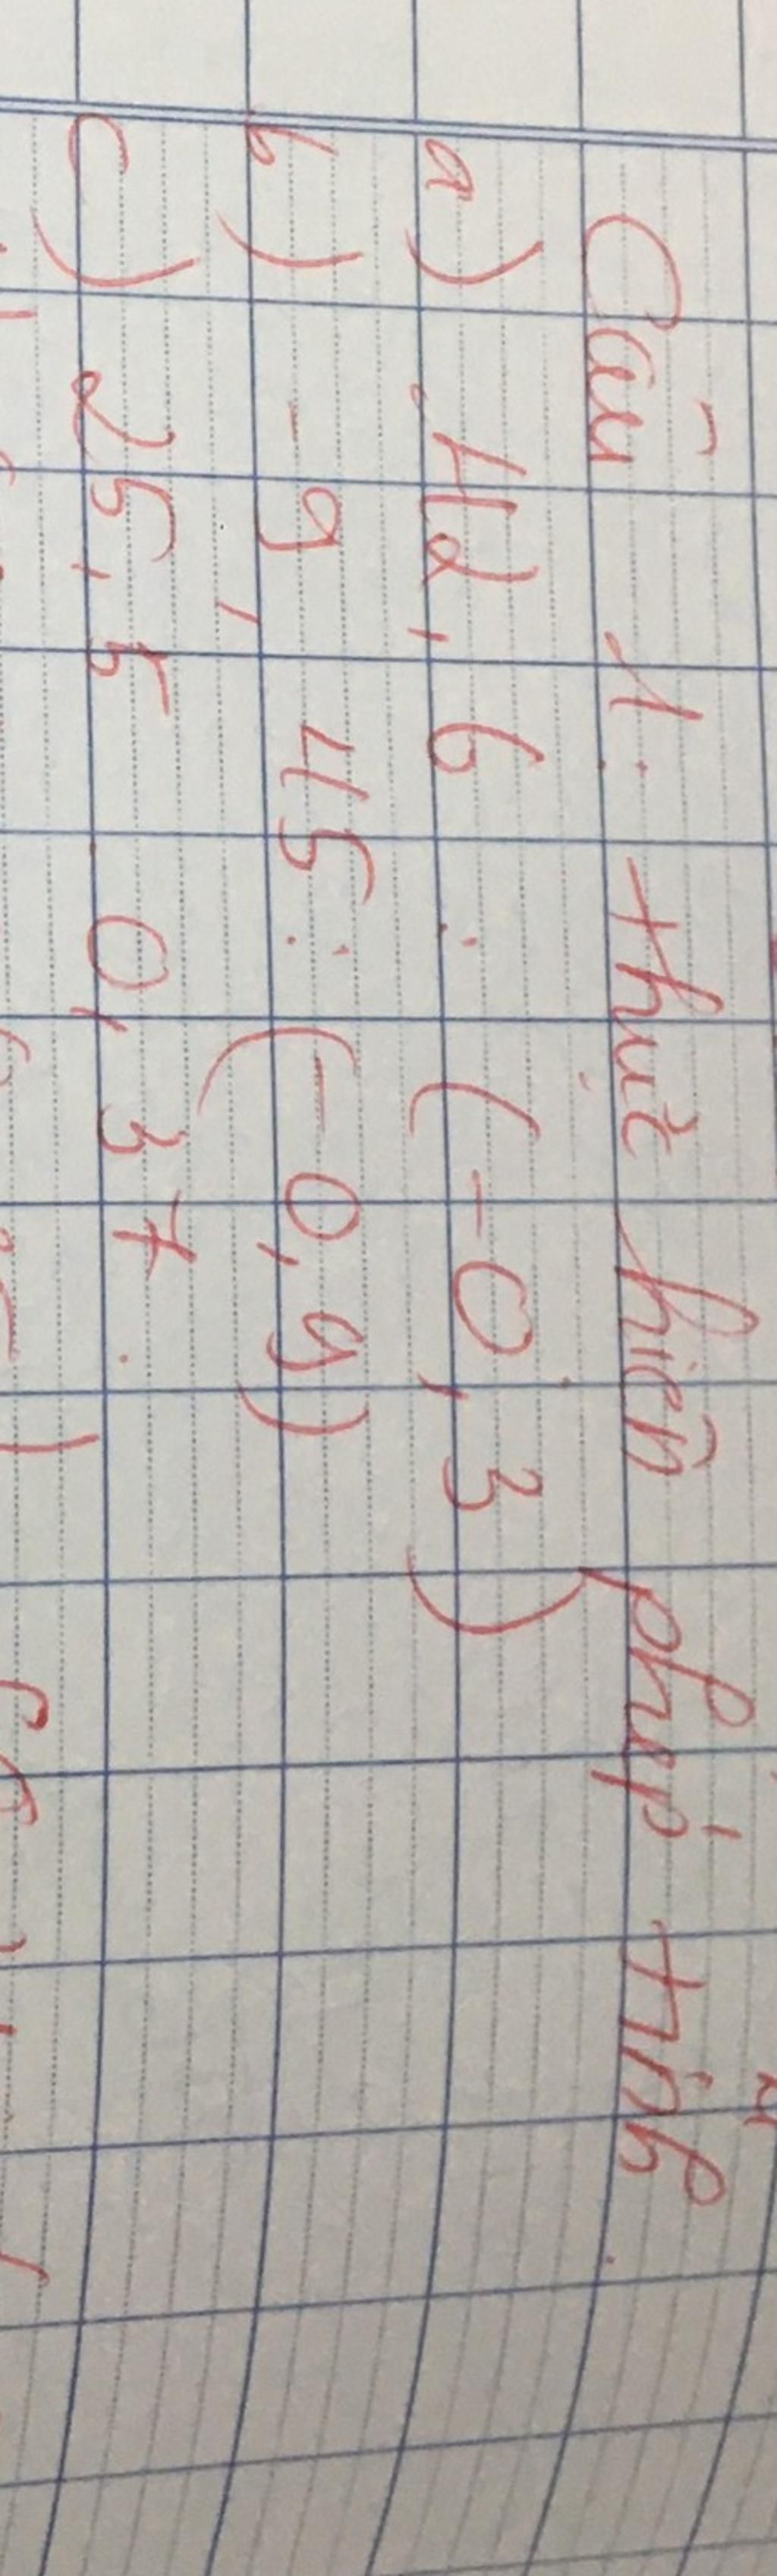 Câu 1: thực hiện phép tính.
a) 42,6 : (-0,3)
b) -9,45 : (-0,9)
c) 25,5 . 0,37.